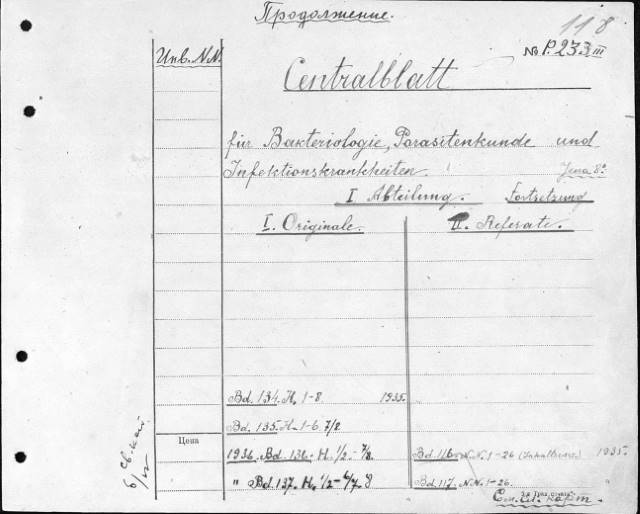 Продолжение.
118
Инв. N.N.
№ P.233 III
Centralblatt
für Bakteriologie, Parasitenkunde und
Infektionskrankheiten. Jena 8º
I Abteilung. Fortsetzung
I. Originale. II. Referate.
Bd. 134. H. 1-8 1935.
Bd. 135. H. 1-6 7/8
Цена
1936. Bd. 136. H. 1/2 - 7/8 Bd. 116 N.N. 1-26 1935.
" Bd. 137. H. 1/2 - 6/7. 8 Bd. 117. N.N. 1-26. "
См. сл. карт.
б/п